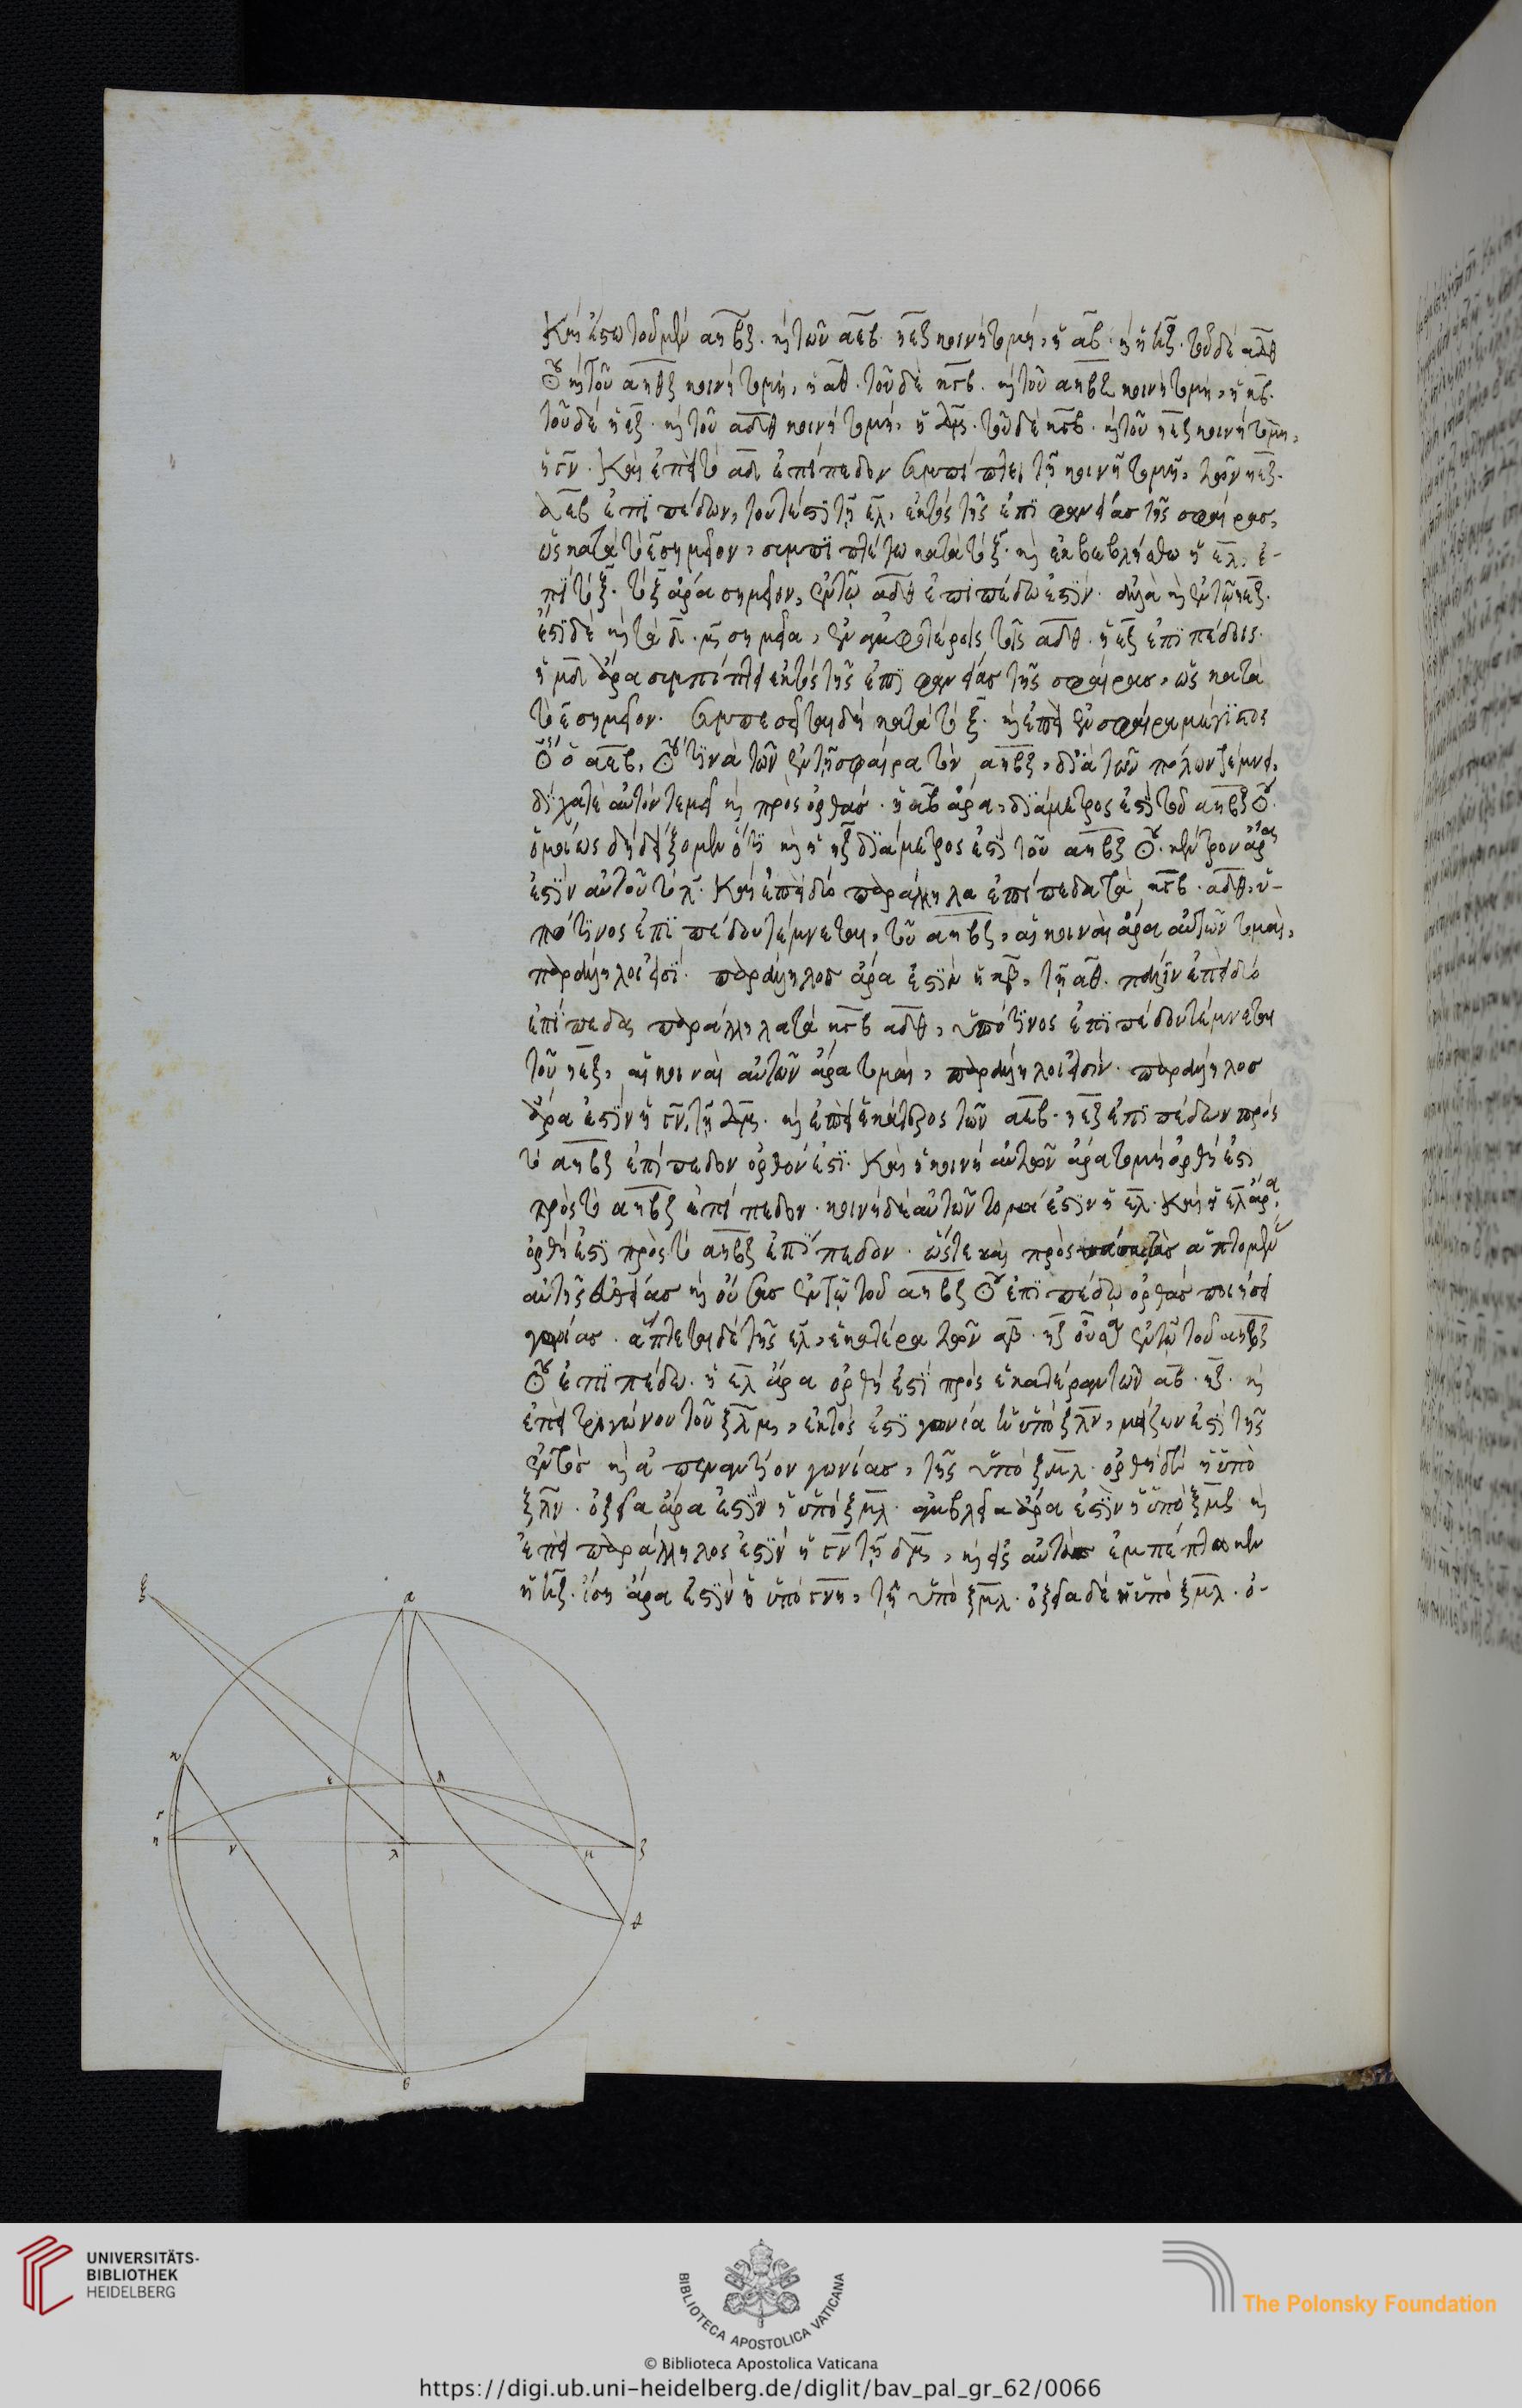 καὶ ἔστω τοῦ μὲν αηβζ. καὶ τῶν αεβ. ηεζ κοινὴ τομὴ, ἡ αβ. καὶ ἡ ηζ. τοῦ δὲ αδθ
καὶ τοῦ αηθζ κοινὴ τομὴ, ἡ αθ. τοῦ δὲ κγβ. καὶ τοῦ αηβζ κοινὴ τομὴ, ἡ κβ.
τοῦ δὲ ηεζ. καὶ τοῦ αδθ κοινὴ τομὴ, ἡ δμ. τοῦ δὲ κγβ. καὶ τοῦ ηεζ κοινὴ τομὴ,
ἡ γν. καὶ ἐπεὶ τὸ αδ ἐπίπεδον συμπίπτει τῇ κοινῇ τομῇ, τῶν ηεζ.
αεβ ἐπιπέδων, τουτέστι τῇ ελ, ἐκτὸς τῆς ἐπιφανείας τῆς σφαίρας,
ὡς κατὰ τὸ ε σημεῖον, συμπιπτέτω κατὰ τὸ ξ. καὶ ἐκβεβλήσθω ἡ ελ, ἐ-
πὶ τὸ ξ. τὸ ξ ἄρα σημεῖον, ἐν τῷ αδθ ἐπιπέδω ἐστίν. ἀλλὰ καὶ ἐν τῷ ηεζ.
ἔστι δὲ καὶ τὰ δ. μ σημεῖα, ἐν ἀμφοτέροις τοῖς αδθ. ηεζ ἐπιπέδοις.
ἡ μδ ἄρα συμπίπτει ἐκτὸς τῆς ἐπιφανείας τῆς σφαίρας, ὡς κατὰ
τὸ ε σημεῖον. συμπεσεῖται δὴ κατὰ τὸ ξ. καὶ ἐπεὶ ἐν σφαίρα μέγιστος
ὁ αεβ, τινὰ τῶν ἐν τῇ σφαίρα τὸν αηβζ, διὰ τῶν πόλων τέμνει,
δίχα τὲ αὐτὸν τεμεῖ καὶ πρὸς ὀρθάς. ἡ αβ ἄρα, διάμετρος ἐστὶ τοῦ αηβζ
ὁμοίως δὴ δείξομεν ὅτι καὶ ἡ ηζ διάμετρος ἐστὶ τοῦ αηβζ κέντρον ἄρα
ἐστὶν αὐτοῦ τὸ λ. καὶ ἐπεὶ δύο παράλληλα ἐπίπεδα τὰ κγβ. αδθ, ὑ-
πό τινος ἐπιπέδου τέμνεται, τοῦ αηβζ, αἱ κοιναὶ ἄρα αὐτῶν τομαὶ,
παράλληλοι εἰσί. παράλληλος ἄρα ἐστὶν ἡ κβ, τῇ αθ. πάλιν ἐπεὶ δύο
ἐπίπεδα παράλληλα τὰ κγβ αδθ, ὑπό τινος ἐπιπέδου τέμνεται
τοῦ ηεζ, αἱ κοιναὶ αὐτῶν ἄρα τομαὶ, παράλληλοι εἰσίν. παράλληλος
ἄρα ἐστὶν ἡ γν, τῇ δμ. καὶ ἐπεὶ ἑκάτερος τῶν αεβ. ηεζ ἐπιπέδων πρὸς
τὸ αηβζ ἐπίπεδον ὀρθόν ἐστι. καὶ ἡ κοινὴ αὐτῶν ἄρα τομὴ ὀρθή ἐστι
πρὸς τὸ αηβζ ἐπίπεδον. κοινὴ δὲ αὐτῶν τομὰ ἐστὶν ἡ ελ. καὶ ἡ ελ ἄρα
ὀρθή ἐστι πρὸς τὸ αηβζ ἐπίπεδον. ὥστε καὶ πρὸς πάσας τὰς ἁπτομέν
αὐτῆς εὐθείας καὶ οὔσας ἐν τῷ τοῦ αηβζ ἐπιπέδῳ ὀρθὰς ποιήσει
γωνίας. ἅπτεται δὲ τῆς ελ, ἑκατέρα τῶν αβ. ηζ οὖσα ἐν τῷ τοῦ αηβζ
ἐπιπέδω. ἡ ελ ἄρα ὀρθή ἐστι πρὸς ἑκατέραν τῶν αβ. ηζ. καὶ
ἐπεὶ τριγώνου τοῦ ξλμ, ἐκτός ἐστι γωνία ἡ ὑπὸ ξλν, μείζων ἐστὶ τῆς
ἐντὸς καὶ ἀπεναντίον γωνίας, τῆς ὑπὸ ξμλ. ὀρθὴ δὲ ἡ ὑπὸ
ξλν. ὀξεῖα ἄρα ἐστὶν ἡ ὑπὸ ξμλ. ἀμβλεῖα ἄρα ἐστὶν ἡ ὑπὸ ξμζ. καὶ
ἐπεὶ παράλληλος ἐστὶν ἡ γν τῇ δμ, καὶ εἰς αὐτὰς ἐμπέπτωκεν
ἡ ηζ. ἴση ἄρα ἐστὶν ἡ ὑπὸ γνη, τῇ ὑπὸ ξμλ. ὀξεῖα δὲ ἡ ὑπὸ ξμλ. ὀ-
ξ
α
κ
ε
δ
γ
η
ν
λ
μ
ζ
θ
β
UNIVERSITÄTS-
BIBLIOTHEK
HEIDELBERG
BIBLIOTECA APOSTOLICA VATICANA
The Polonsky Foundation
© Biblioteca Apostolica Vaticana
https://digi.ub.uni-heidelberg.de/diglit/bav_pal_gr_62/0066